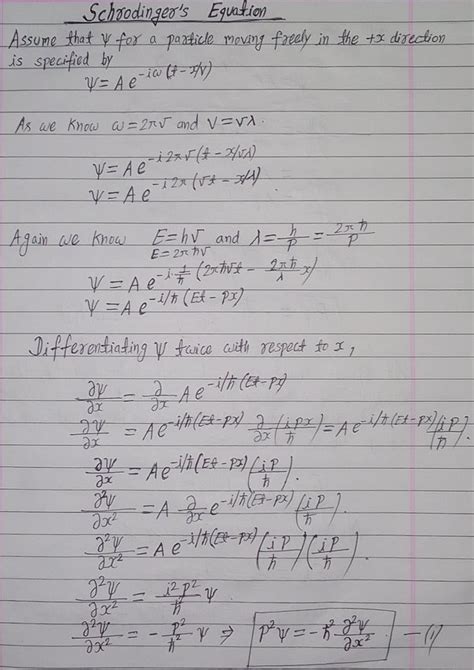 Schrodinger's Equation
Assume that Ψ for a particle moving freely in the +x direction
is specified by
Ψ = A e^{-iω(t - x/v)}
As we know ω = 2πν and V = νλ.
Ψ = A e^{-i2πν(t - x/νλ)}
Ψ = A e^{-i2π(νt - x/λ)}
Again we know E = hν and λ = h/p = 2πħ/p
E = 2πħν
Ψ = A e^{-i·1/ħ(2πħνt - 2πħ/λ x)}
Ψ = A e^{-i/ħ(Et - px)}
Differentiating Ψ twice with respect to x,
∂Ψ/∂x = ∂/∂x A e^{-i/ħ(Et - px)}
∂Ψ/∂x = A e^{-i/ħ(Et - px)} ∂/∂x (ipx/ħ) = A e^{-i/ħ(Et - px)} (ip/ħ)
∂Ψ/∂x = A e^{-i/ħ(Et - px)} (ip/ħ).
∂²Ψ/∂x² = A ∂/∂x e^{-i/ħ(Et - px)} (ip/ħ)
∂²Ψ/∂x² = A e^{-i/ħ(Et - px)} (ip/ħ) (ip/ħ).
∂²Ψ/∂x² = i²p²/ħ² Ψ
∂²Ψ/∂x² = - p²/ħ² Ψ ⇒ p²Ψ = -ħ² ∂²Ψ/∂x² — (1)